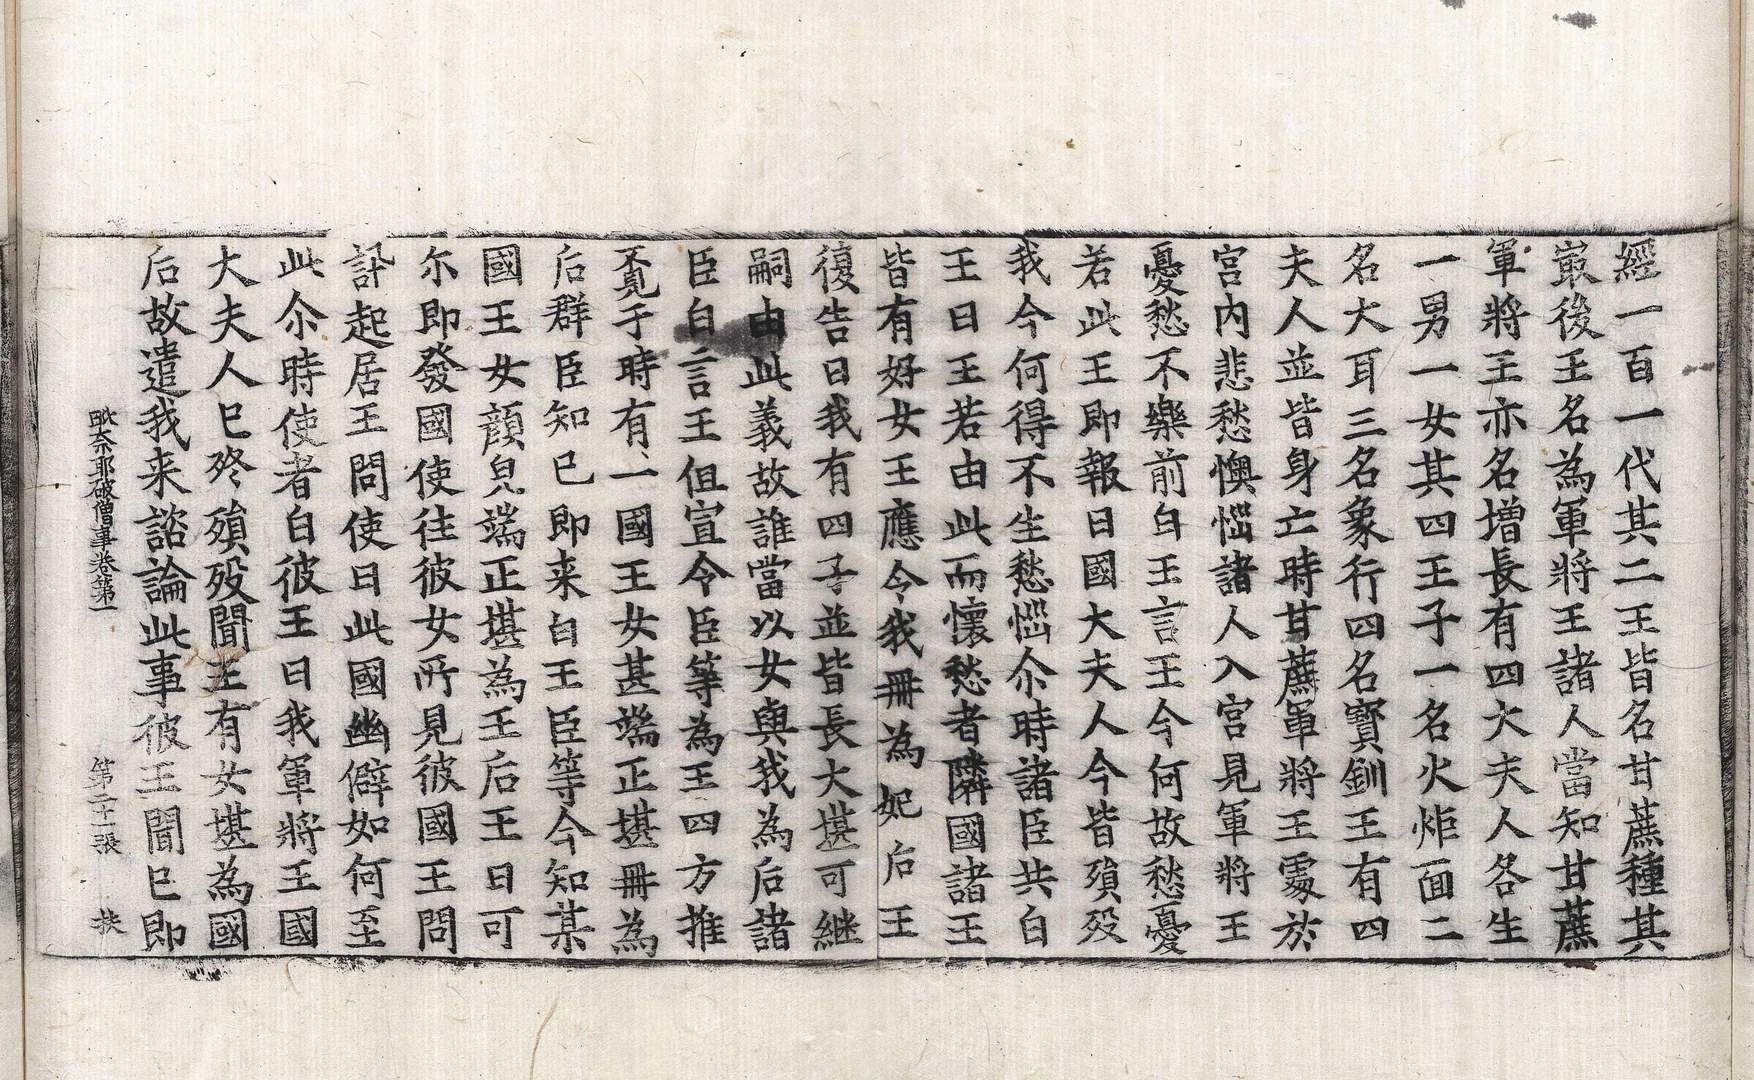 經一百一代其二王皆名甘蔗種其
冣後王名為軍將王諸人當知甘蔗
軍將王亦名增長有四大夫人各生
一男一女其四王子一名火炬面二
名大耳三名象行四名寶釧王有四
夫人並皆身亡時甘蔗軍將王處於
宮内悲愁懊惱諸人入宮見軍將王
憂愁不樂前白王言王今何故愁憂
若此王即報曰國大夫人今皆殞歿
我今何得不生愁惱尒時諸臣共白
王曰王若由此而懷愁者隣國諸王
皆有好女王應令我冊為妃后王
復告曰我有四子並皆長大堪可継
嗣由此義故誰當以女與我為后諸
臣白言王但宣令臣等為王四方推
覔于時有一國王女甚端正堪冊為
后群臣知已即来白王臣等今知某
國王女顔皃端正堪為王后王曰可
尓即發國使往彼女所見彼國王問
訃起居王問使曰此國幽僻如何至
此尒時使者白彼王曰我軍將王國
大夫人已終殞歿聞王有女堪為國
后故遣我来諮論此事彼王聞已即
毗奈耶破僧事卷第一 第二十一張 扶